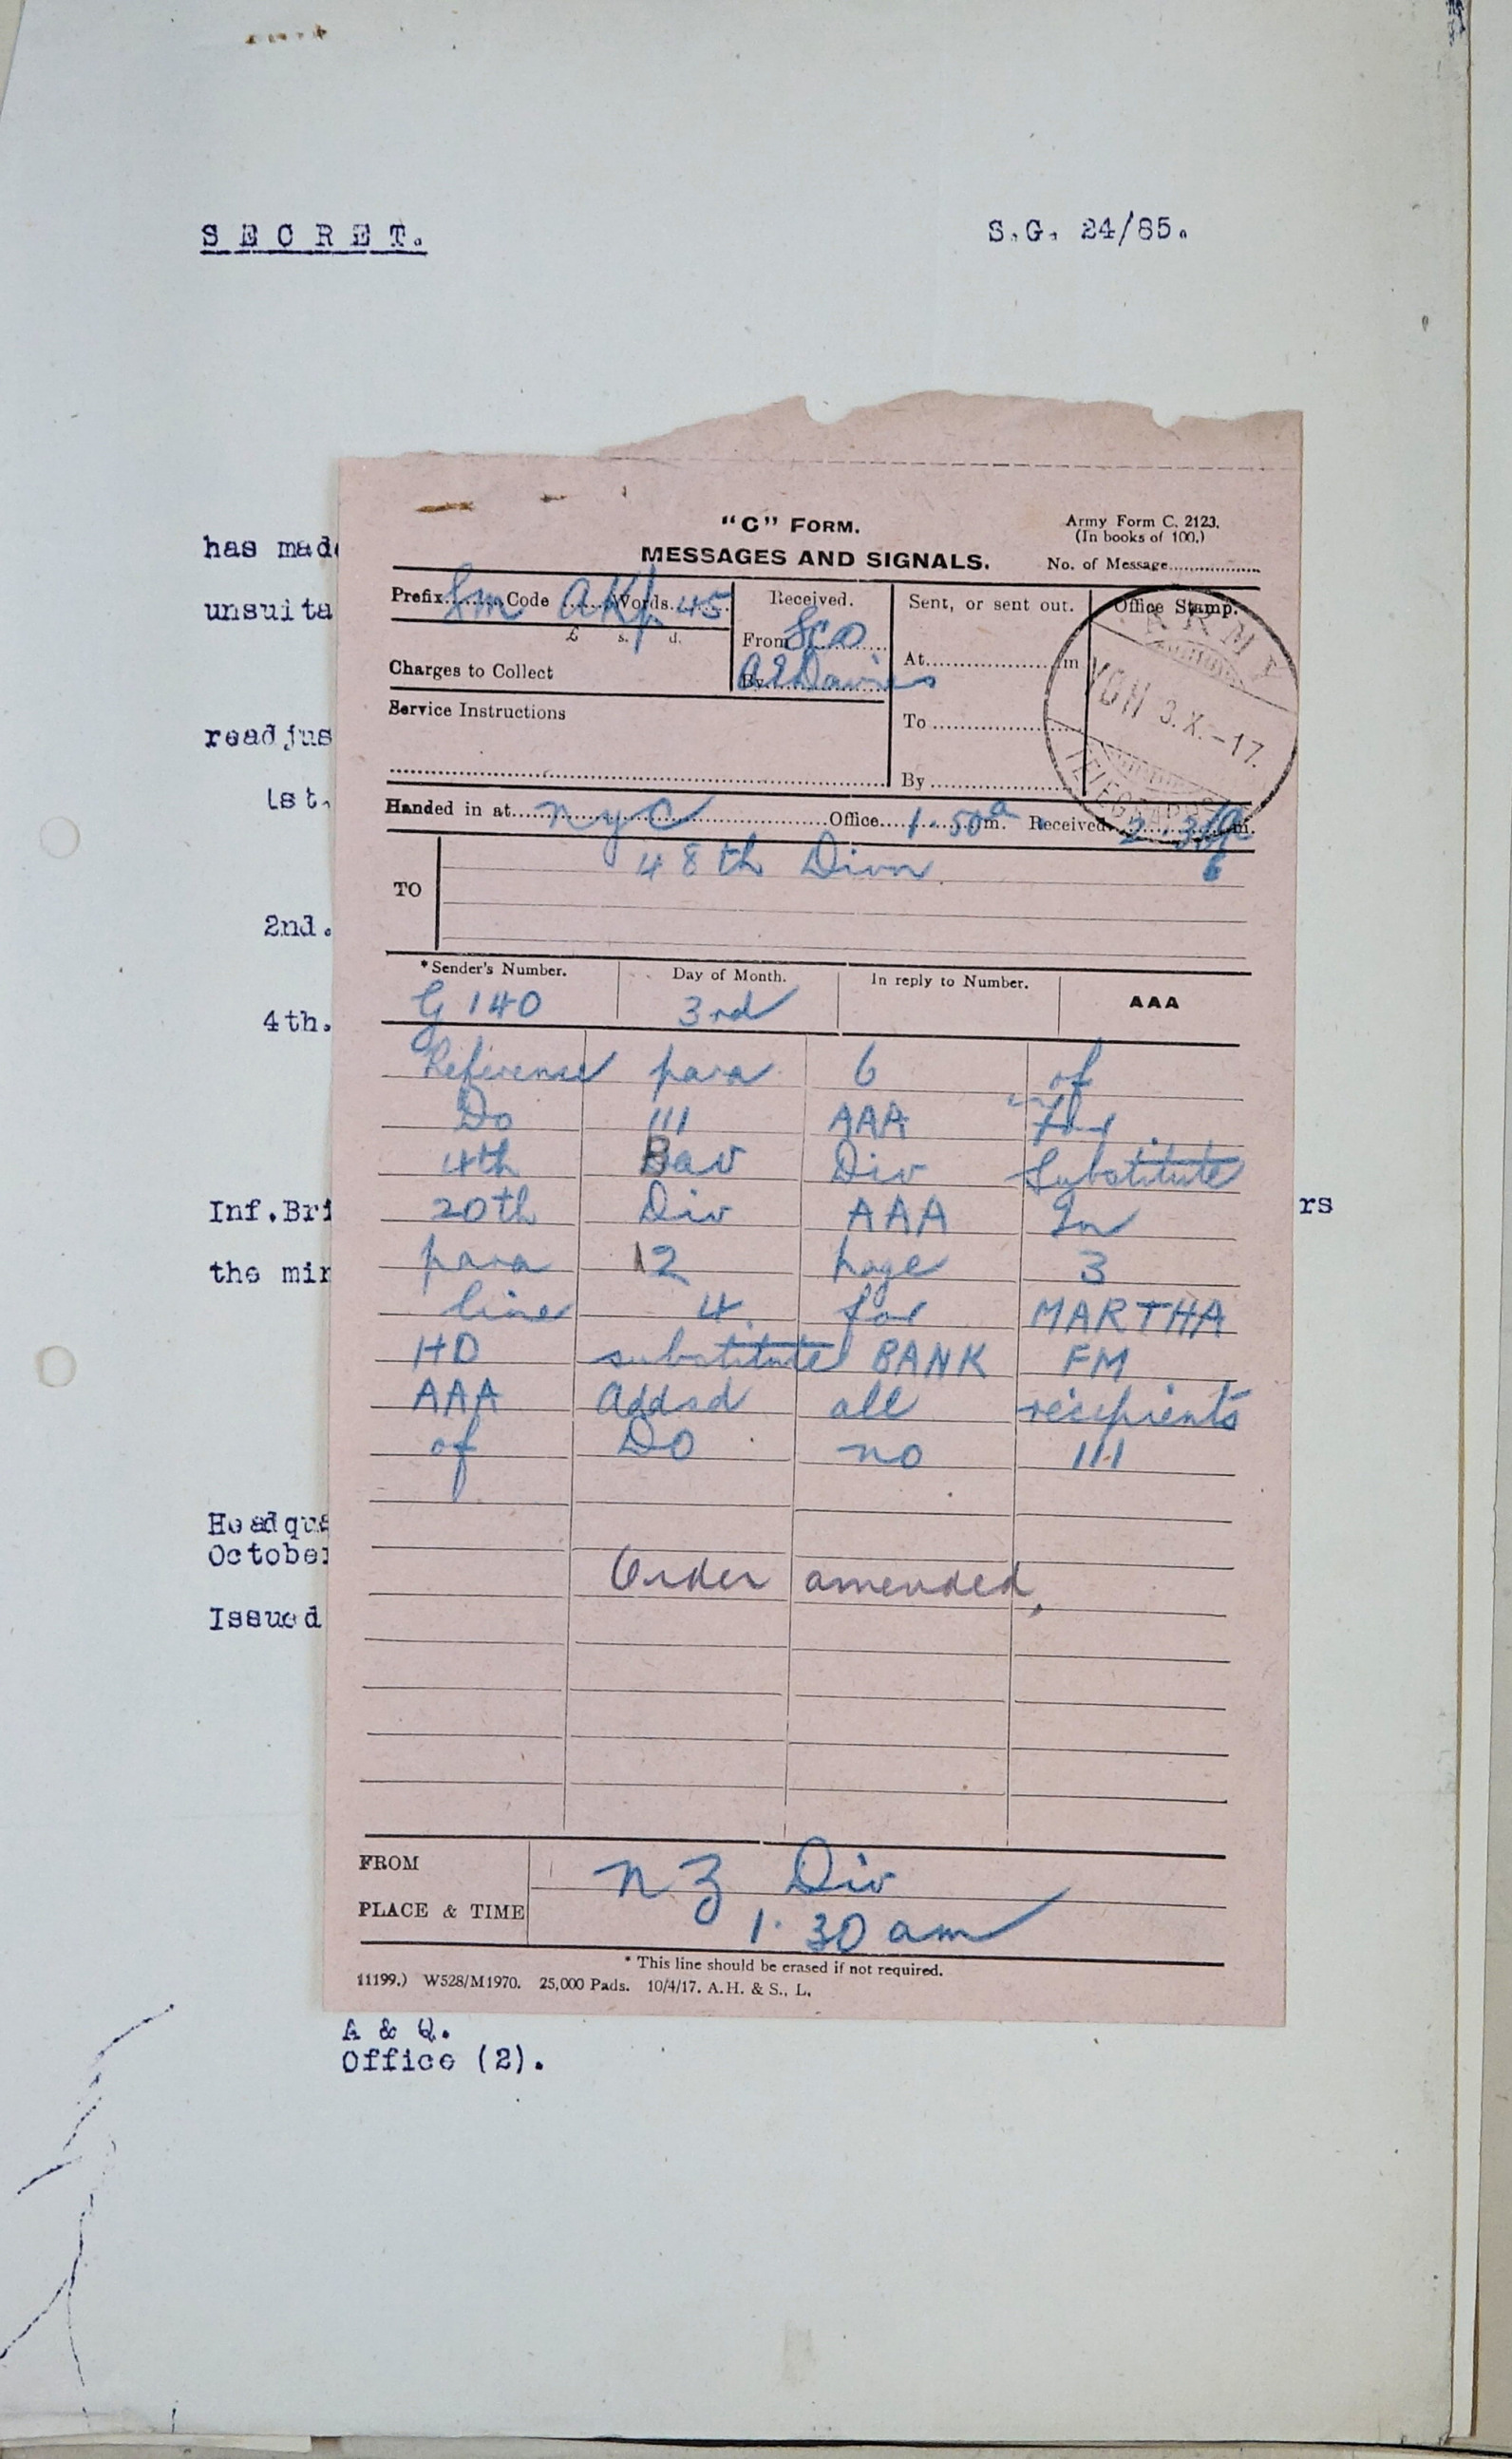 SECRET.
S.G. 24/85.
has made
unsuita
readjus
1st.
2nd.
4th.
Inf.Bri
rs
the mir
Headqua
October
Issued
"C" FORM.
MESSAGES AND SIGNALS.
Army Form C. 2123.
(In books of 100.)
No. of Message
Prefix Sm Code AKP Words 45
£ s. d.
Charges to Collect
Service Instructions
Received.
From SCO
By A E Davies
Sent, or sent out.
At m
To
By
Office Stamp.
ARMY
YDH 3.X.-17.
TELEGRAPHS
Handed in at NYC Office 1.50 a m. Received 2.36 a m.
TO 48th Divn
*Sender's Number. Day of Month. In reply to Number. AAA
G 140 3rd
Reference para 6 of
Do 111 AAA For
4th Bav Div Substitute
20th Div AAA In
para 12 page 3
line 4. for MARTHA
HO substitute BANK FM
AAA Addsd all recipients
of DO no 111
Order amended,
FROM NZ Div
PLACE & TIME 1.30 am
* This line should be erased if not required.
11199.) W528/M1970. 25,000 Pads. 10/4/17. A.H. & S., L.
A & Q.
Office (2).